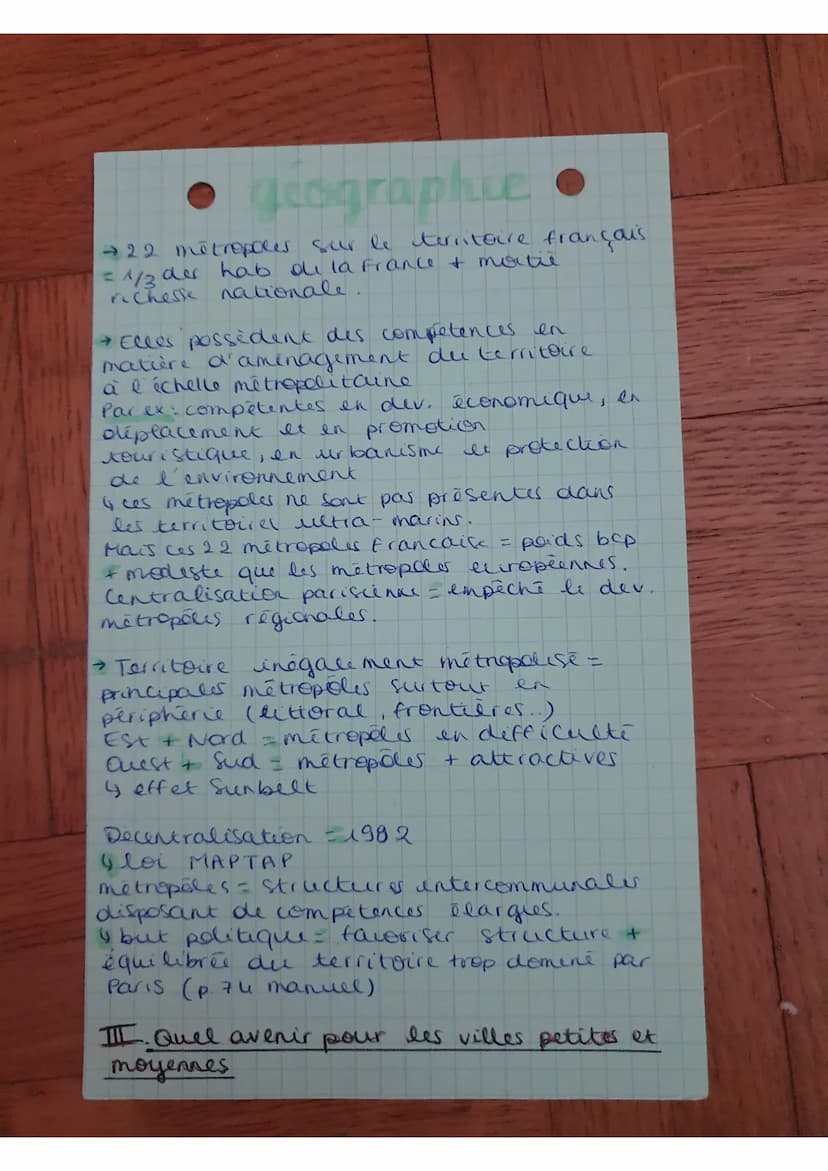 géographie
→ 22 métropoles sur le territoire français
= 1/3 des hab de la France + moitié
richesse nationale.
→ Elles possèdent des compétences en
matière d'aménagement du territoire
à l'échelle métropolitaine
Par ex : compétentes en dev. économique, en
déplacement et en promotion
touristique, en urbanisme et protection
de l'environnement
↳ ces métropoles ne sont pas présentes dans
les territoires ultra-marins.
Mais ces 22 métropoles francaise = poids bcp
+ modeste que les métropoles européennes.
Centralisation parisienne = empêché le dev.
métropoles régionales.
→ Territoire inégalement métropolisé =
principales métropoles surtout en
périphérie (littoral, frontières..)
Est + Nord = métropoles en difficulté
Ouest + Sud = métropoles + attractives
↳ effet Sunbelt
Decentralisation = 1982
↳ loi MAPTAP
métropoles = structures intercommunales
disposant de compétences élargies.
↳ but politique = favoriser structure +
équilibrée du territoire trop dominé par
Paris (p.74 manuel)
III. Quel avenir pour les villes petites et
moyennes